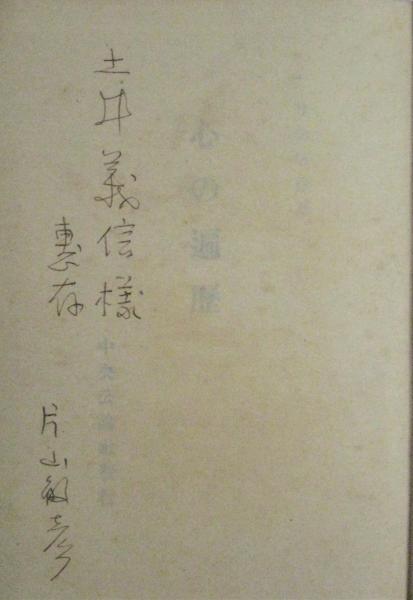 心の遍歴
中央公論社発行
土井義信様
惠存
片山敏彦